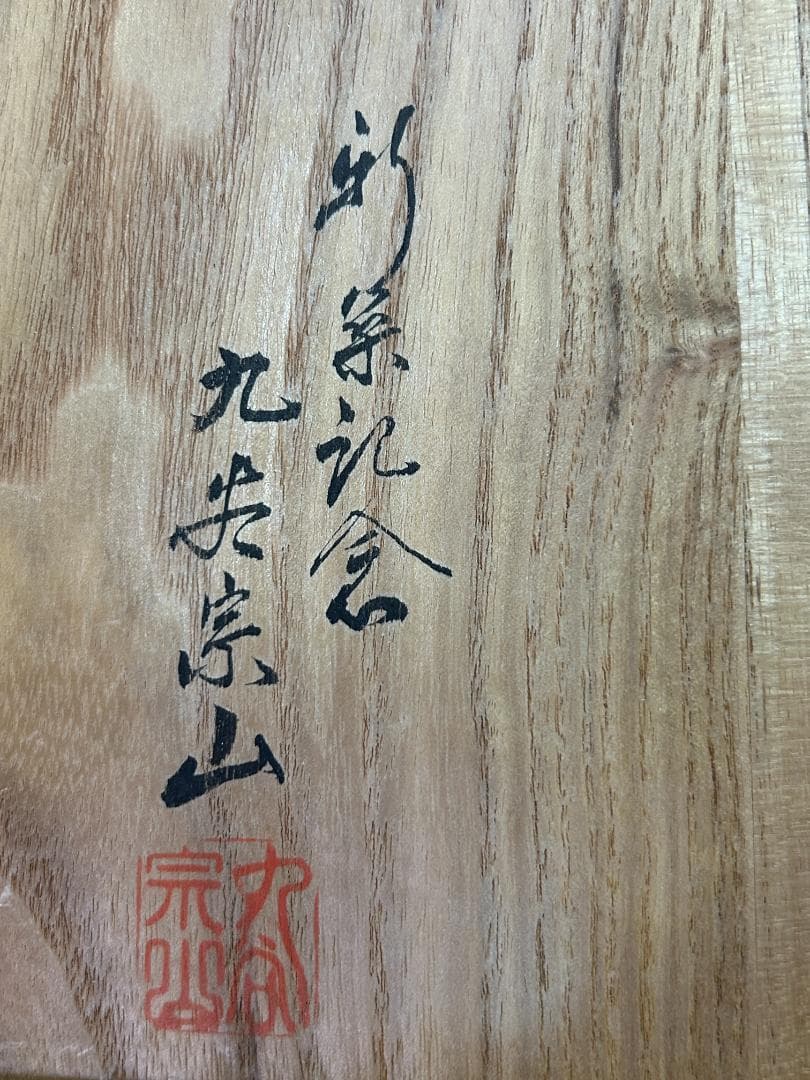 新築記念
九谷宗山
九谷
宗山